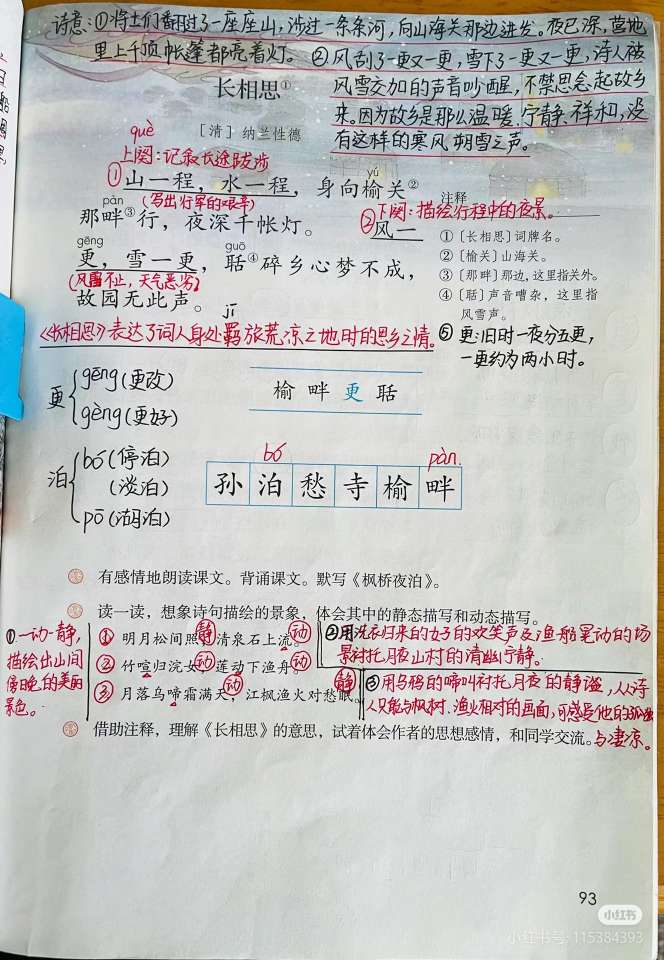 诗意：①将士们翻过了一座座山，涉过一条条河，向山海关那边进发。夜已深，营地
里上千顶帐篷都亮着灯。②风刮了一更又一更，雪下了一更又一更，诗人被
风雪交加的声音吵醒，不禁思念起故乡
来。因为故乡是那么温暖、宁静、祥和，没
有这样的寒风朔雪之声。
长相思①
〔清〕纳兰性德
què
上阕：记叙长途跋涉
yú
①山一程，水一程，身向榆关②
(写出行军的艰辛)
pàn
那畔③行，夜深千帐灯。
②下阕：描绘行程中的夜景。
风一
gēng guō
更，雪一更，聒④碎乡心梦不成，
(风雪不止，天气恶劣)
故园无此声。
jī
《长相思》表达了词人身处羁旅荒凉之地时的思乡之情。
注释
①〔长相思〕词牌名。
②〔榆关〕山海关。
③〔那畔〕那边，这里指关外。
④〔聒〕声音嘈杂，这里指
风雪声。
⑤更：旧时一夜分五更，
一更约为两小时。
更 gēng(更改)
gèng(更好)
榆 畔 更 聒
泊 bó(停泊)
(淡泊)
pō(湖泊)
bó pàn
孙 泊 愁 寺 榆 畔
有感情地朗读课文。背诵课文。默写《枫桥夜泊》。
读一读，想象诗句描绘的景象，体会其中的静态描写和动态描写。
①一动一静，
描绘出山间
傍晚的美丽
景色。
①明月松间照(静)，清泉石上流(动)。
②竹喧归浣女(动)，莲动下渔舟(动)。
③月落乌啼霜满天(动)，江枫渔火对愁眠(静)。
②用洗衣归来的女子的欢笑声及渔船晃动的场
景衬托月夜山村的清幽宁静。
③用乌鸦的啼叫衬托月夜的静谧，
人只能与枫树、渔火相对的画面，可感受他的孤独
与凄凉。
借助注释，理解《长相思》的意思，试着体会作者的思想感情，和同学交流。
93
小红书
小红书号:115384393